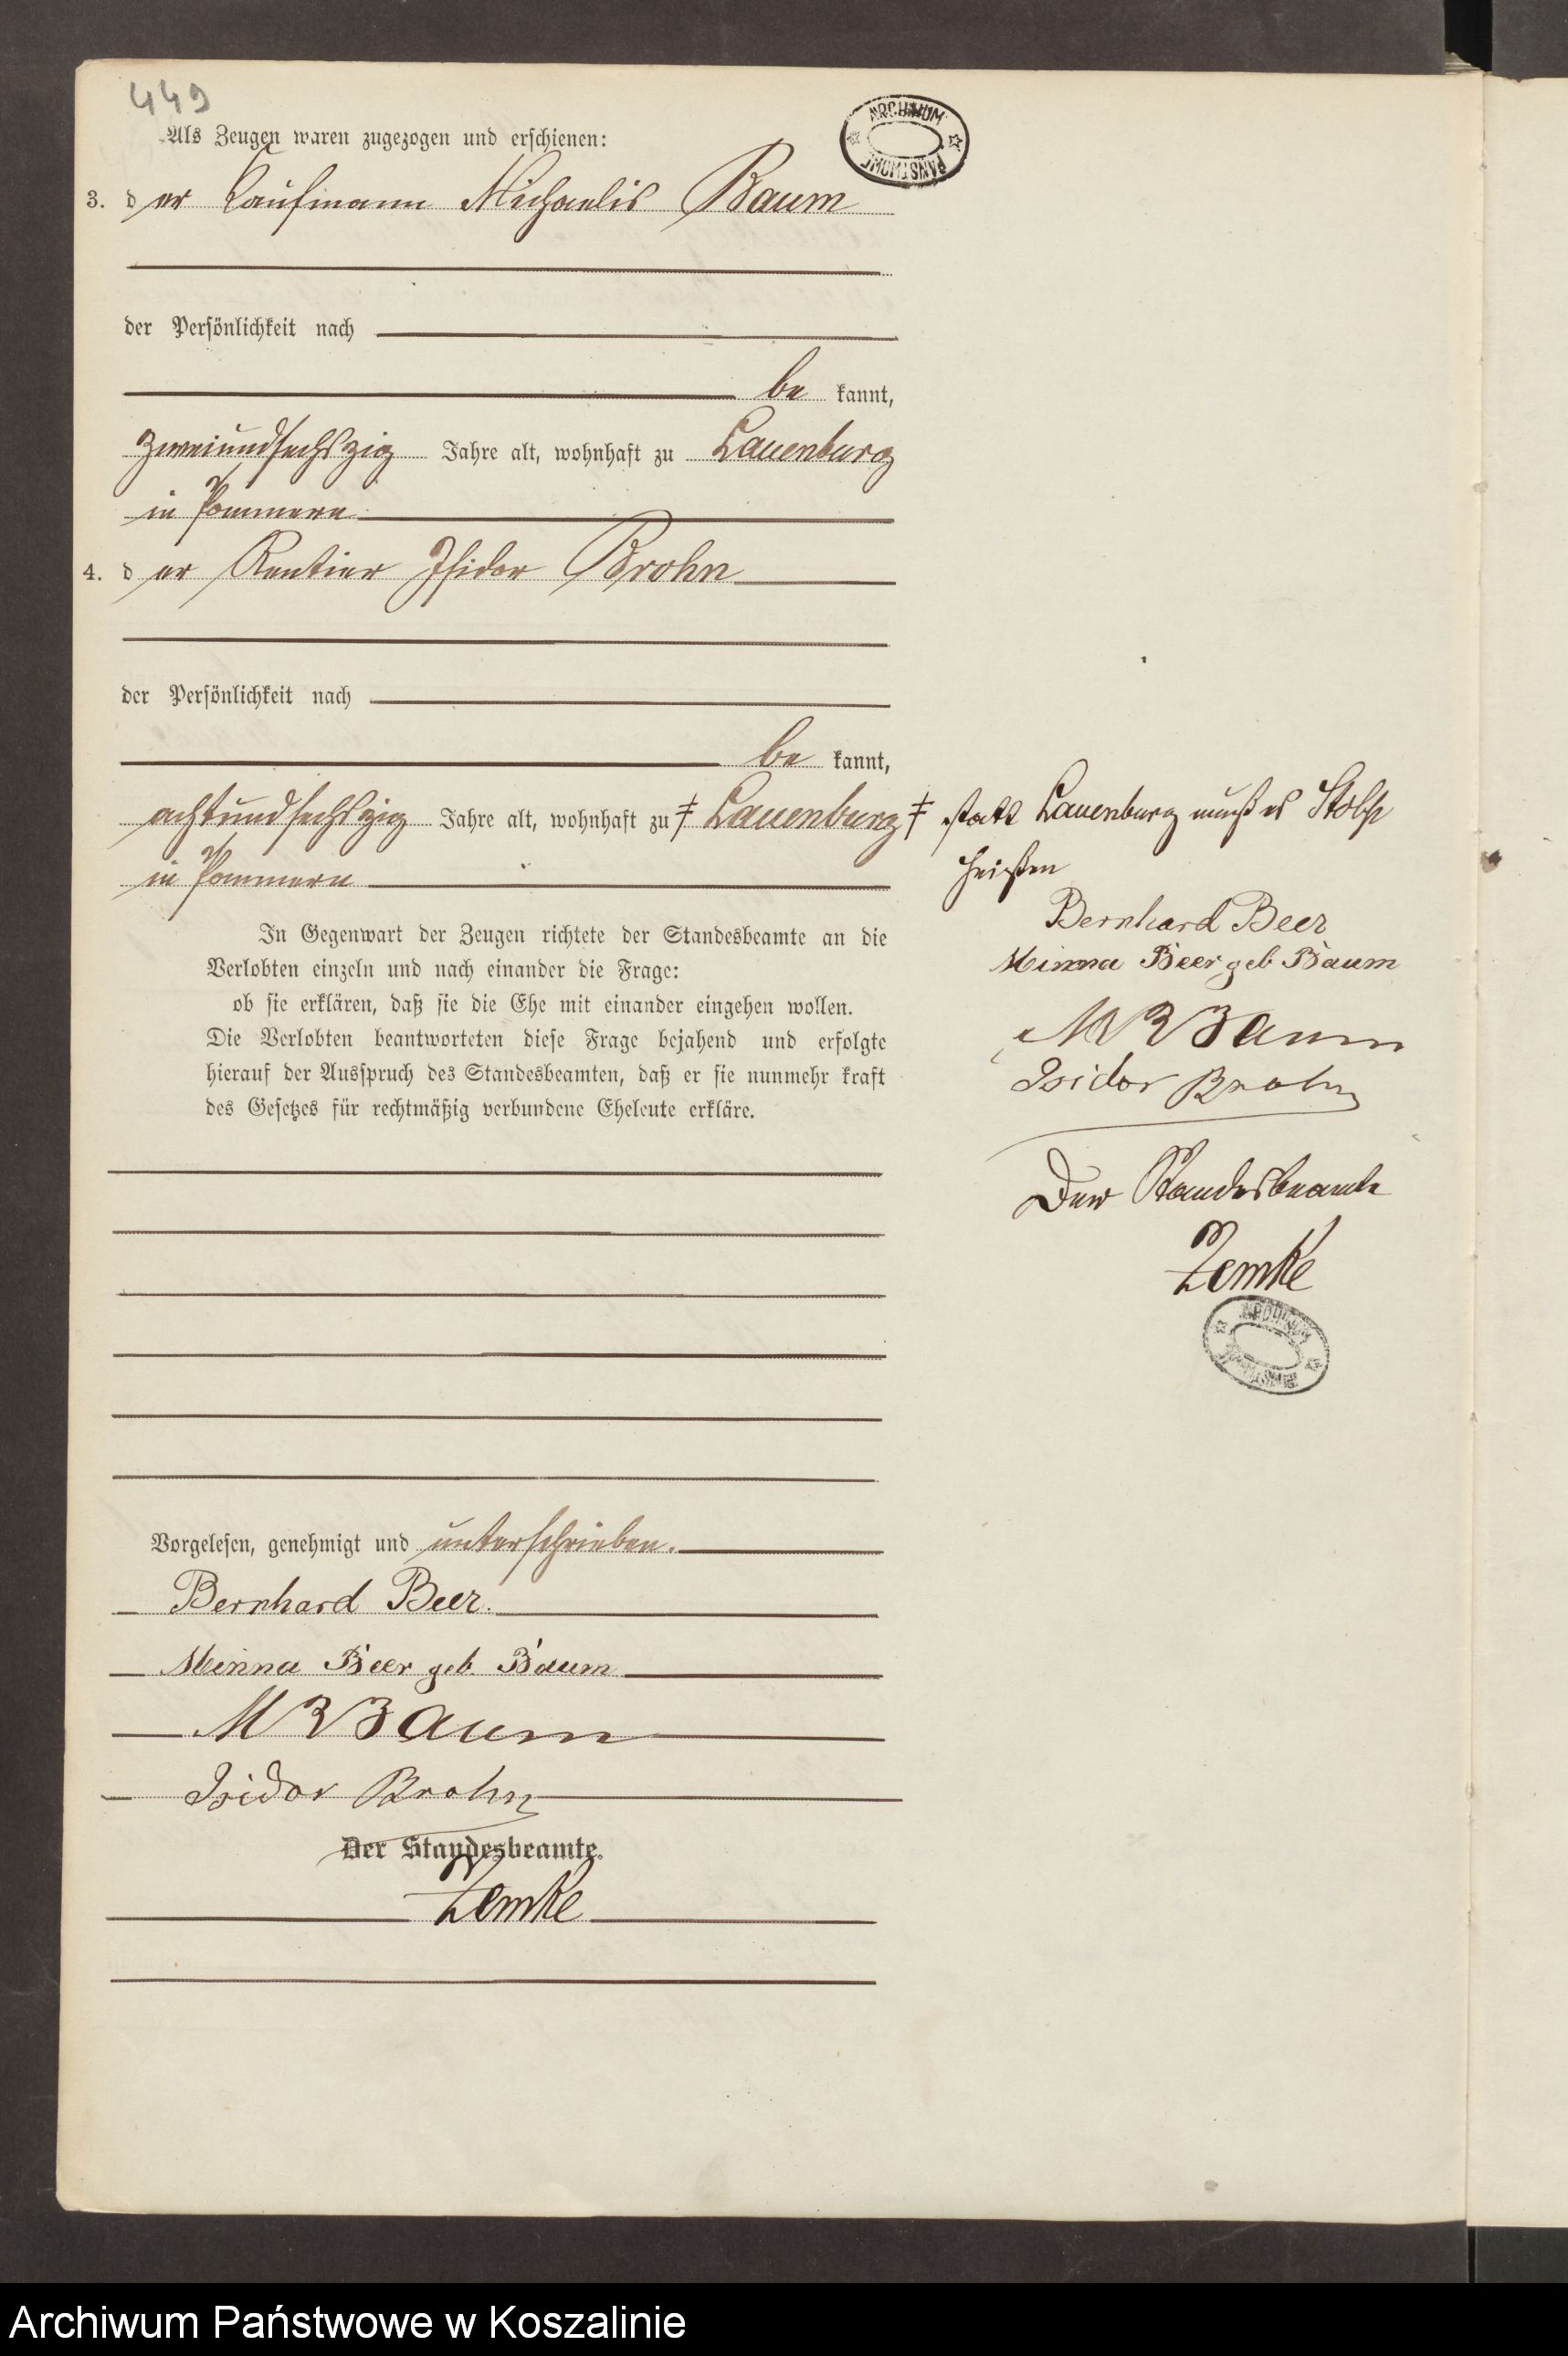 449
ARCHIWUM
PAŃSTWOWE
Als Zeugen waren zugezogen und erschienen:
3. der Kaufmann Michaelis Baum
der Persönlichkeit nach
be kannt,
zweiundsechszig Jahre alt, wohnhaft zu Lauenburg
in Pommern
4. der Rentier Isidor Brohn
der Persönlichkeit nach
be kannt,
achtundsechszig Jahre alt, wohnhaft zu ‡ Lauenburg ‡
in Pommern
In Gegenwart der Zeugen richtete der Standesbeamte an die
Verlobten einzeln und nach einander die Frage:
ob sie erklären, daß sie die Ehe mit einander eingehen wollen.
Die Verlobten beantworteten diese Frage bejahend und erfolgte
hierauf der Ausspruch des Standesbeamten, daß er sie nunmehr kraft
des Gesetzes für rechtmäßig verbundene Eheleute erkläre.
Vorgelesen, genehmigt und unterschrieben.
Bernhard Beer.
Minna Beer geb. Baum
M Baum
Isidor Brohn
Der Standesbeamte.
Zemke
statt Lauenburg muß es Stolp
heißen
Bernhard Beer
Minna Beer geb Baum
M Baum
Isidor Brohn
Der Standesbeamte
Zemke
ARCHIWUM
PAŃSTWOWE
Archiwum Państwowe w Koszalinie